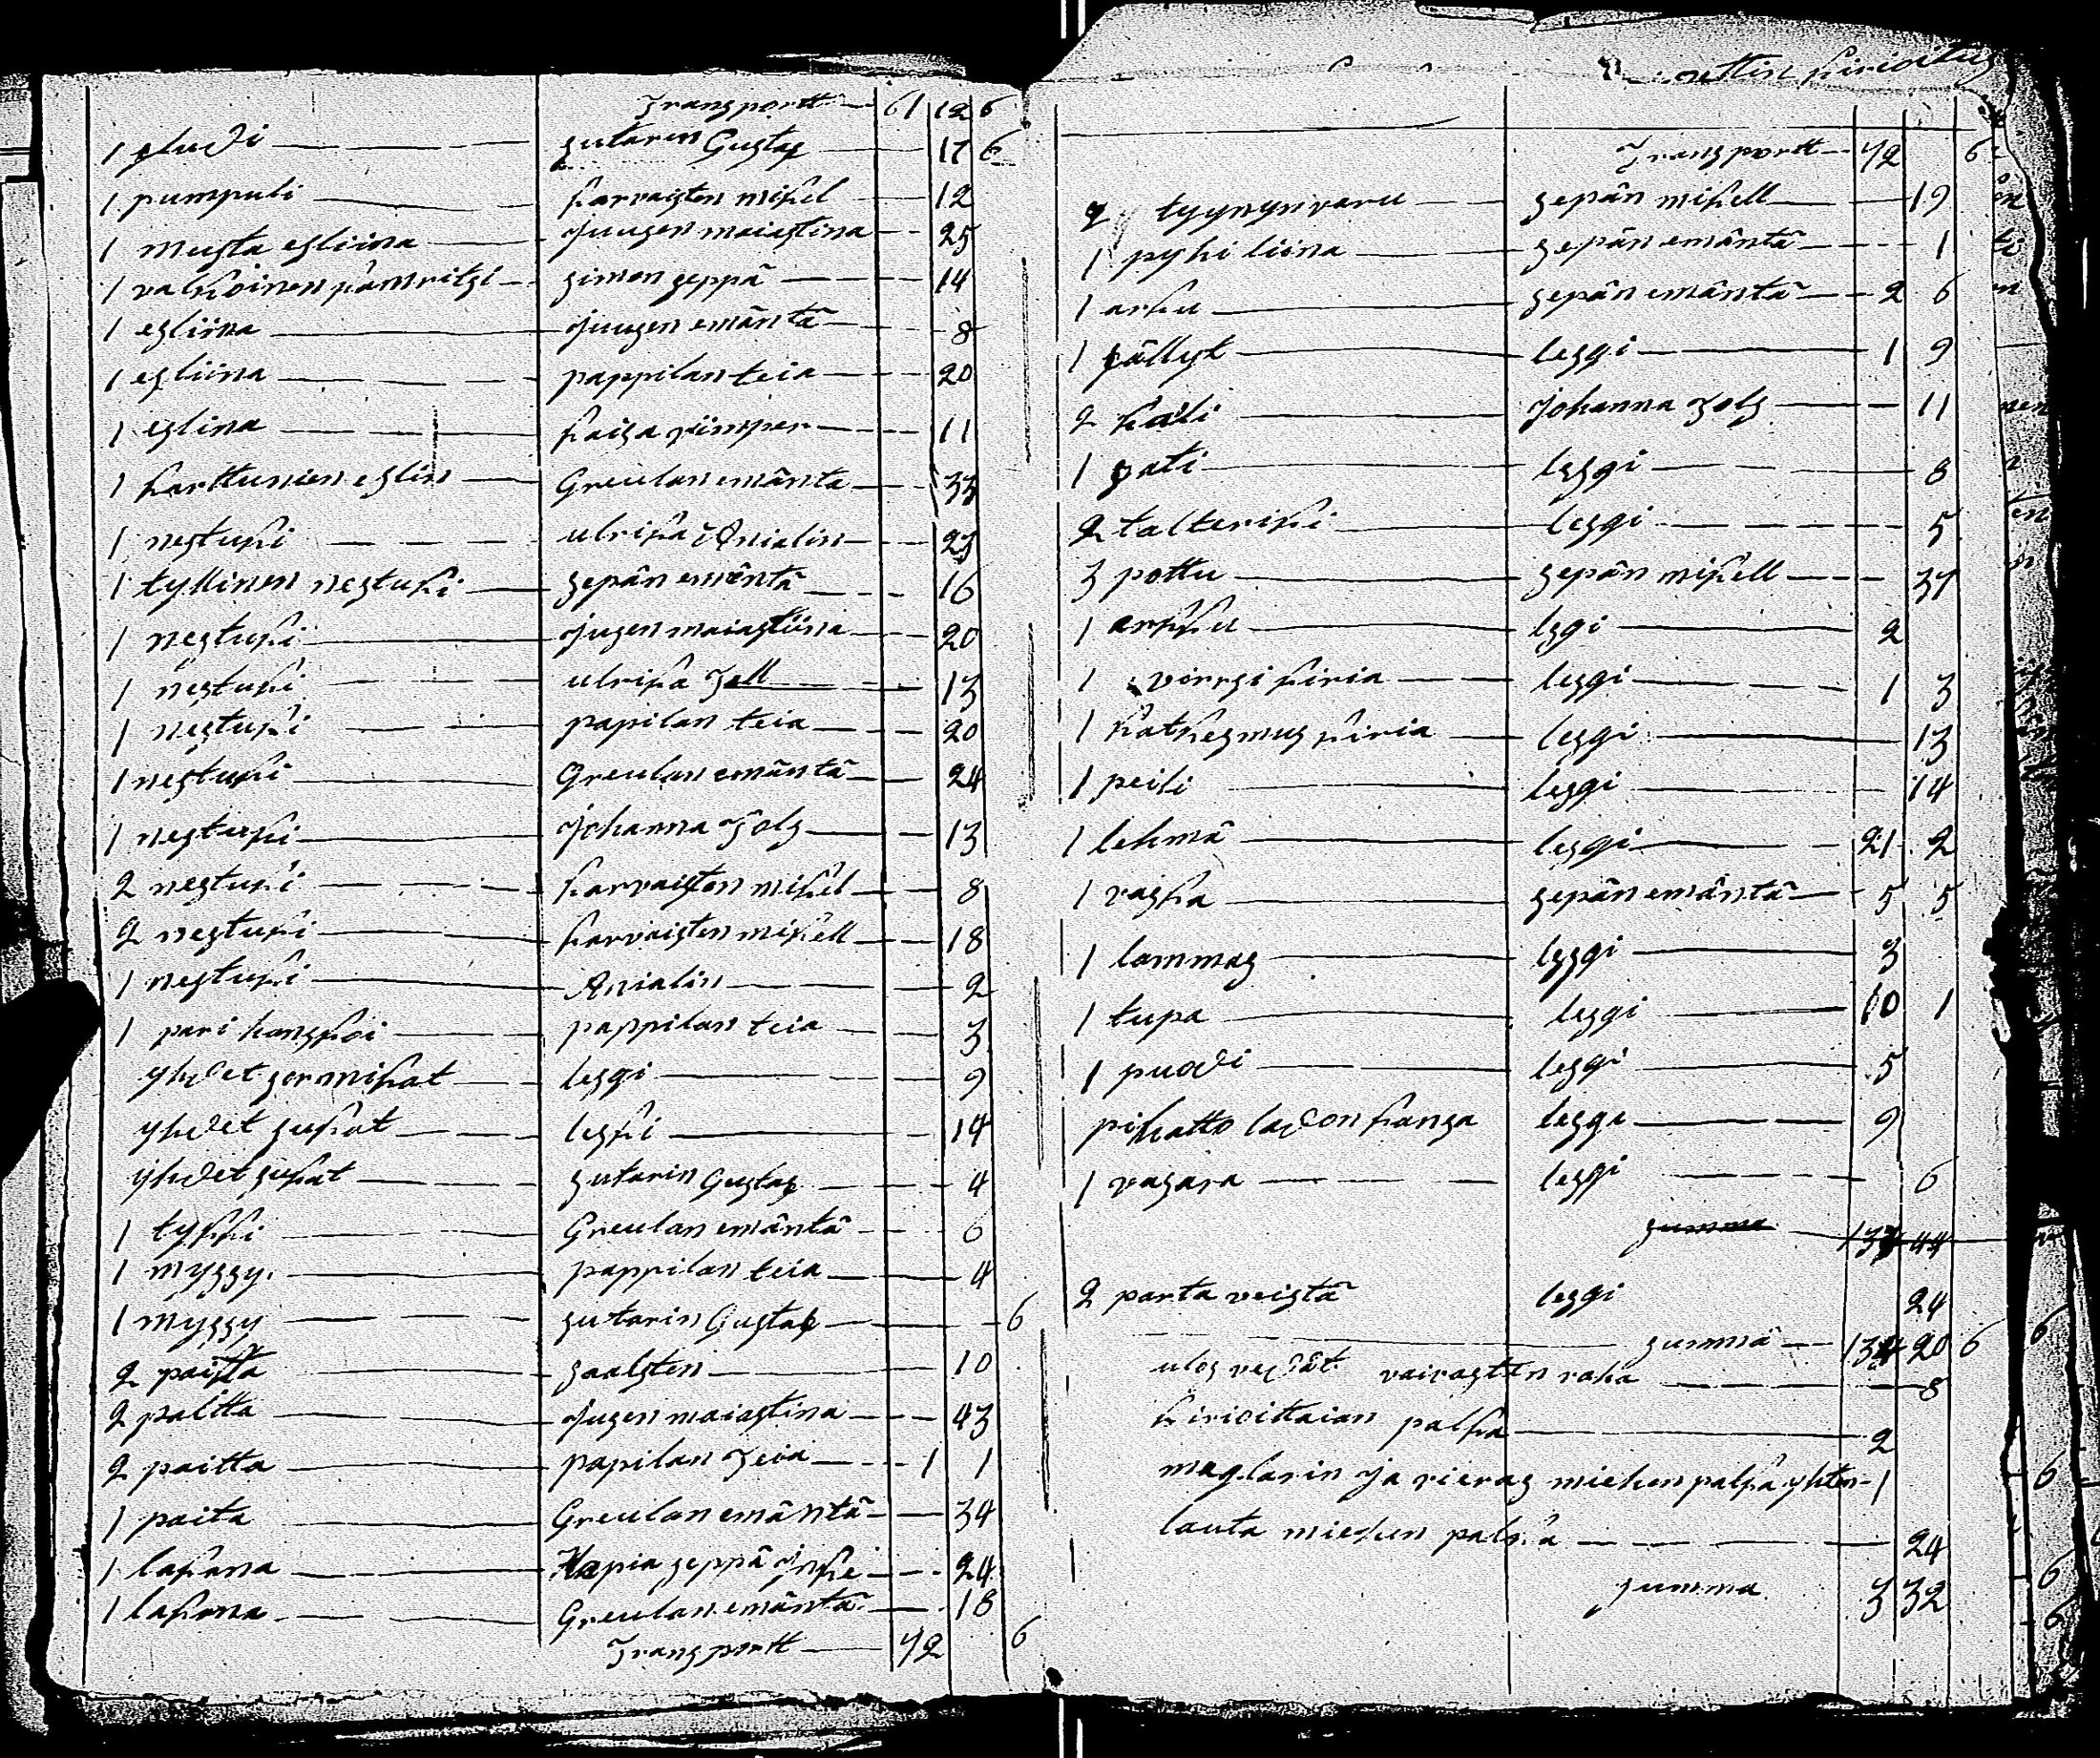 Transportt 61 12 6
1 pludi sutaren Gustaf 17 6
1 pumpuli karvaisten mikel 12
1 musta esliina Juusen maiastina 25
1 valkoinen kamritsi simon seppä 14
1 esliina Juusen emäntä 8
1 esliina pappilan teia 20
1 eslina kaisa 11
1 karttunien eslin Greulan emänta 33
1 nestuki ulrika Anialin 23
1 tyllinen nestuki sepän emäntä 16
1 nestuki Jusen maiastiina 20
1 nestuki ulrika Jsell 13
1 nestuki papilan teia 20
1 nestuki Greulan emäntä 24
1 nestuki Johanna Jols 13
2 nestuki karvaisten mikel 8
2 nestuki karvaisten mikell 18
1 nestuki Anialin 2
1 pari hanskoi pappilan teia 3
yhdet sormikat leski 9
yhdet sukat leski 14
yhdet sukat sutarin Gustaf 4
1 tykki Greulan emäntä 6
1 myssy pappilan teia 4
1 myssy sutarin Gustaf 6
2 paitta saalsten 10
2 paitta Jusen maiastina 43
2 paitta papilan Teia 1 1
1 paita Greulan emäntä 34
1 lakana Hapia seppä 24
1 lakana Greulan emäntä 18
Transportt 72 6
kirioitus
Transportt 72 6
2 tyynynvaru sepän mikell 19
1 pyhi liina sepän emäntä 1
1 arku sepän emäntä 2 6
1 pällyt leski 1 9
2 kaali Johanna Jols 11
1 pati leski 8
2 talteriki leski 5
3 pottu sepän mikell 37
1 arkku leski 2
1 virrsi kiria leski 1 3
1 kathesmus kiria leski 13
1 peili leski 14
1 lehmä leski 21 2
1 vaska sepän emäntä 5 5
1 lammas leski 3
1 tupa leski 10 1
1 puodi leski 5
pihatto ladon kansa leski 9
1 vasara leski 6
summa 133 44
2 parta veistä leski 24
summa 134 20 6
ulos vedät vaivasten raha 8
kirioittaian palka 2
maglarin ja vieras miehen palka yhten 1
lauta miehen palka 24
summa 3 32